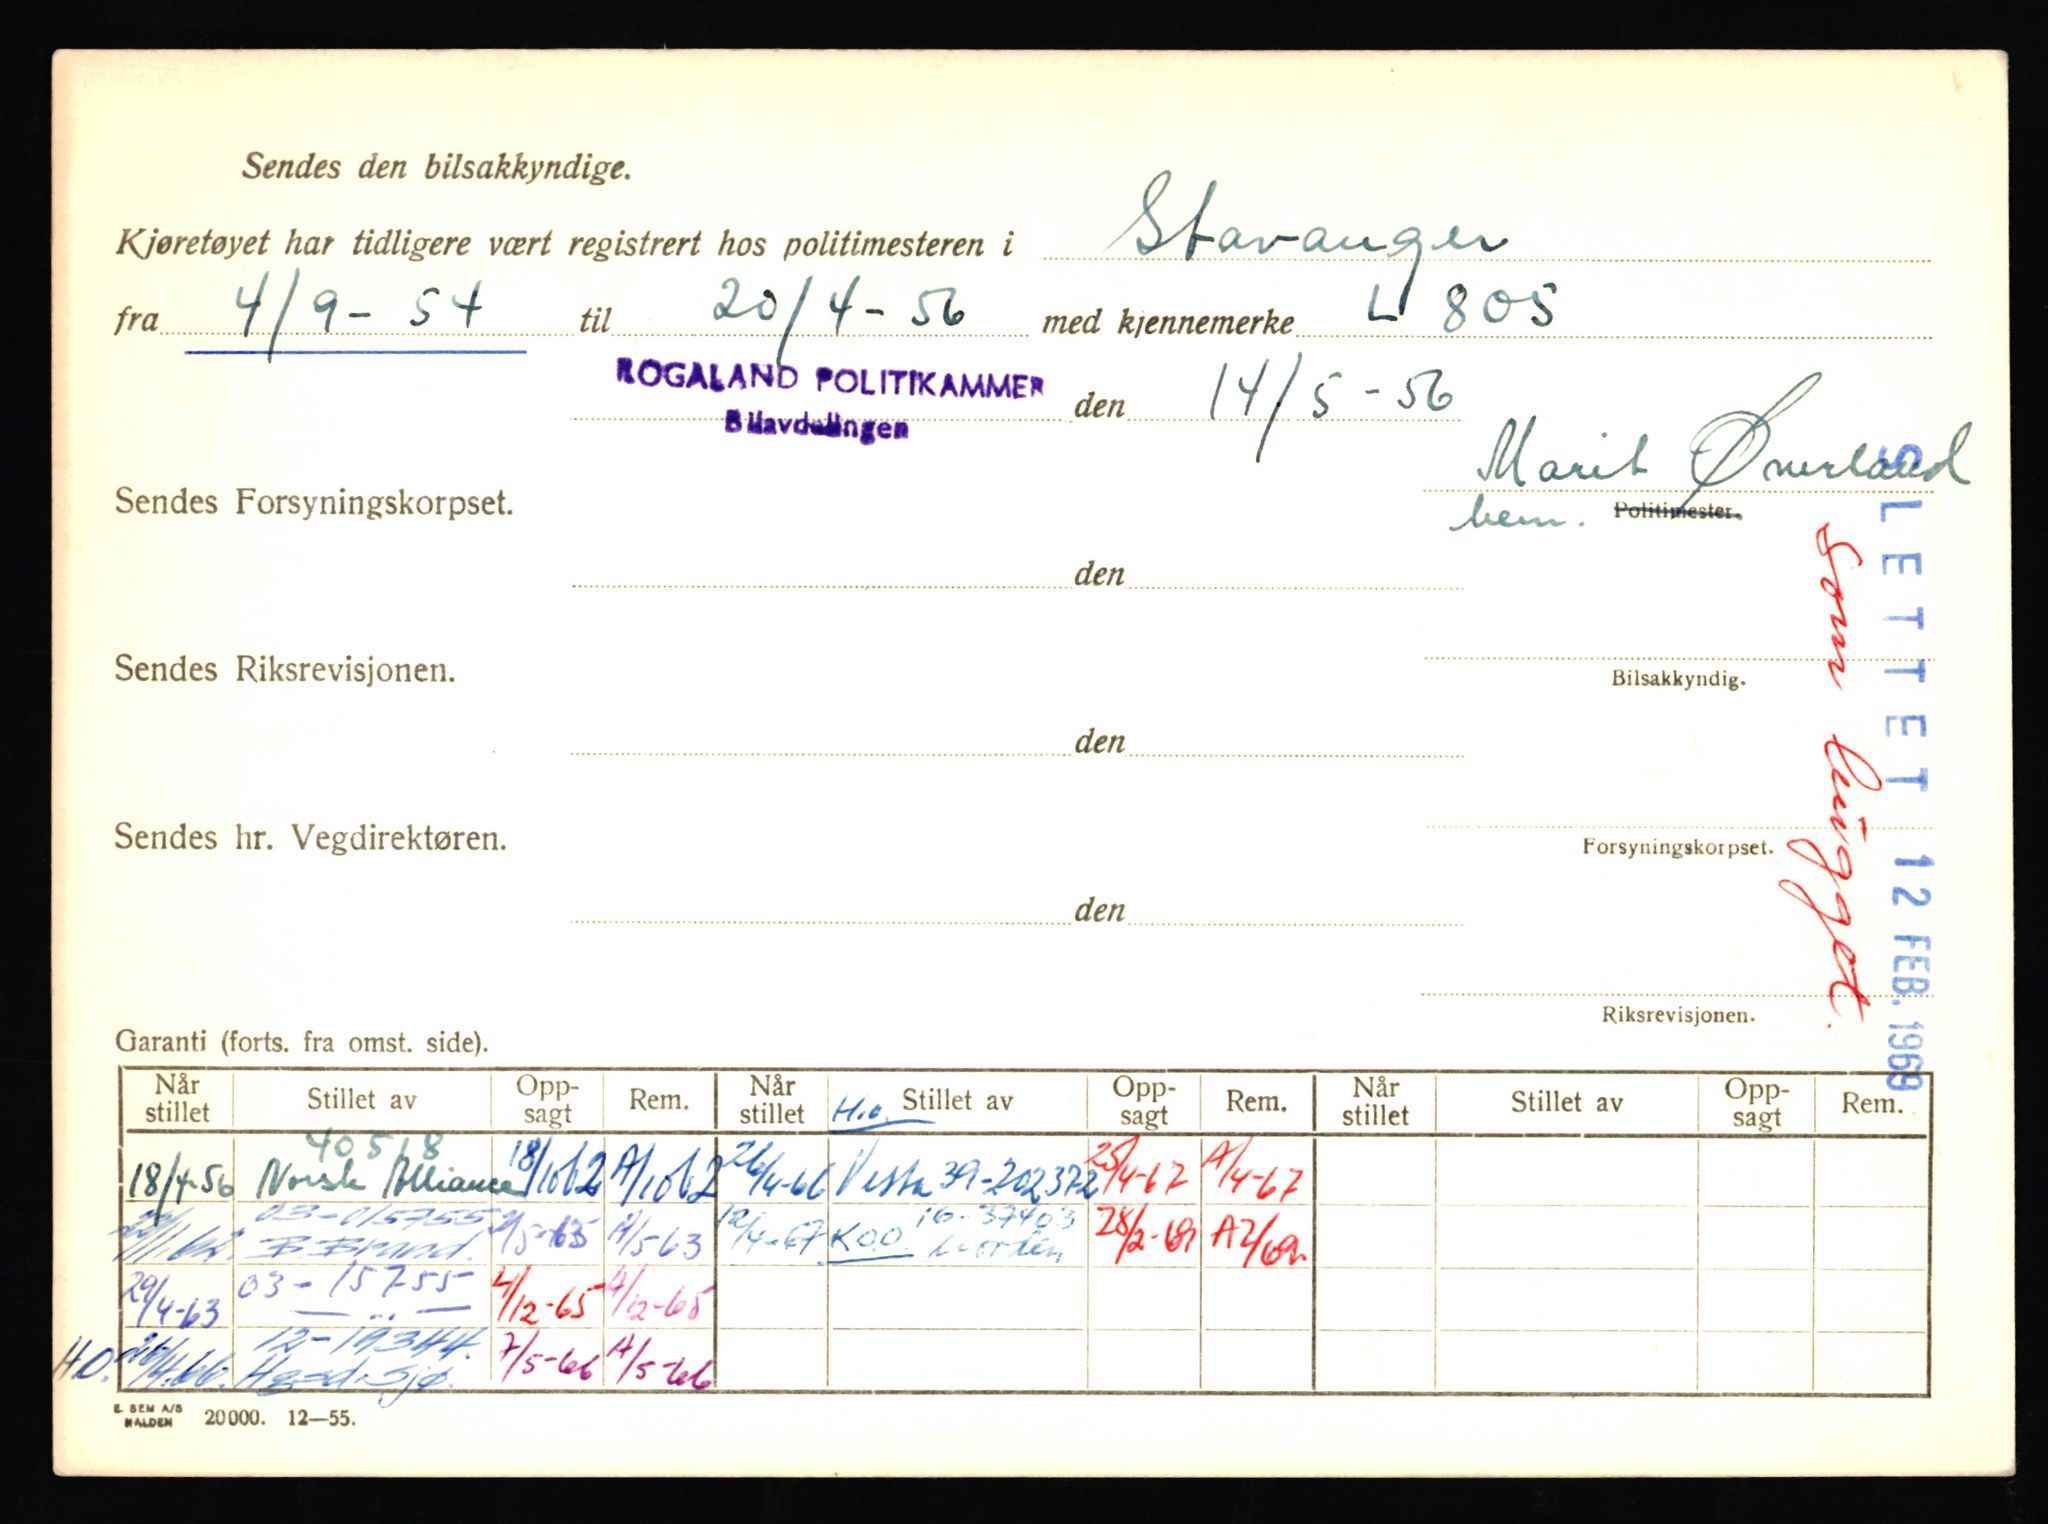 Sendes den bilsakkyndige.
Kjøretøyet har tidligere vært registrert hos politimesteren i Stavanger
fra 4/9-54 til 20/4-56 med kjennemerke L 805
ROGALAND POLITIKAMMER
Bilavdelingen
den 14/5-56
Marit Øverland
Sendes Forsyningskorpset.
Politimester.
den
Sendes Riksrevisjonen.
Bilsakkyndig.
den
Sendes hr. Vegdirektøren.
Forsyningskorpset.
den
Riksrevisjonen.
SLETTET 12 FEB. 1969
som hugget.
Garanti (forts. fra omst. side).
Når stillet Stillet av Opp-sagt Rem. Når stillet H.o. Stillet av Opp-sagt Rem. Når stillet Stillet av Opp-sagt Rem.
40518
18/4-56 Norsk Alliance 18/10 62 A/10 62 26/4-66 Vesta 39-202372 25/4-67 A/4-67
03-015755 16-37403
B. Brand. /5-63 A/5 63 12/4-67 Norden 28/2-69 A2/69
29/4-63 03-15755 4/12-65 A/12-65
12-19344.
H.O. 7/5-66 A/5-66
E. SEM A/S
HALDEN 20000. 12—55.